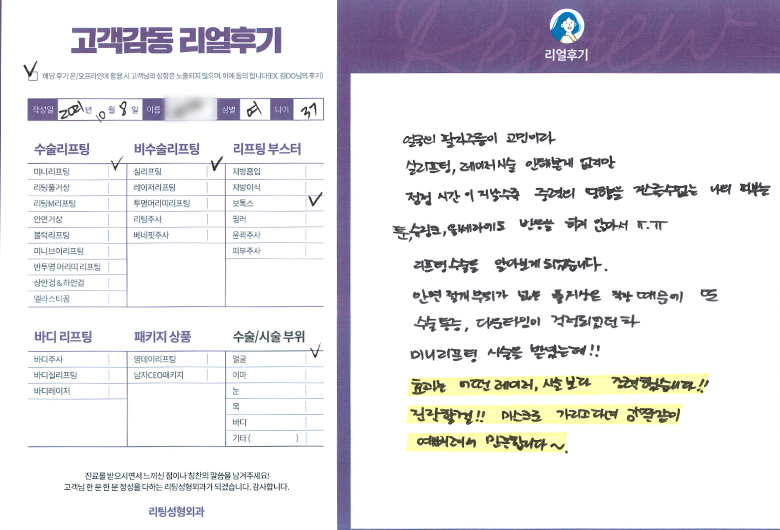 고객감동 리얼후기
해당 후기 온/오프라인에 활용 시 고객님의 성함은 노출되지 않으며, 이에 동의 합니다(EX. 김OO님의 후기)
작성일 2021년 10월 8일 이름 성별 여 나이 37
수술리프팅
미니리프팅
리팅풀거상
리팅M리프팅
안면거상
볼턱리프팅
미니브이리프팅
반투명 머리띠 리프팅
상안검 & 하안검
엘라스티꿈
비수술리프팅
실리프팅
레이저리프팅
투명머리띠리프팅
리팅주사
베네핏주사
리프팅 부스터
지방흡입
지방이식
보톡스
필러
윤곽주사
피부주사
바디 리프팅
바디주사
바디실리프팅
바디레이저
패키지 상품
영데이리프팅
남자CEO패키지
수술/시술 부위
얼굴
이마
눈
목
바디
기타 ( )
진료를 받으시면서 느끼신 점이나 칭찬의 말씀을 남겨주세요!
고객님 한 분 한 분 정성을 다하는 리팅성형외과가 되겠습니다. 감사합니다.
리팅성형외과
Review
리얼후기
얼굴의 팔자주름이 고민이라
실리프팅, 레이저시술 안해본게 없지만
점점 시간이 지날수록 중력의 영향을 거스를수없는 나의 피부는
슈링크, 울쎄라에도 반응을 하지 않아서 ㅠ.ㅠ
리프팅수술을 알아보게 되었습니다.
안면 절개부위가 넓은 풀거상은 때문에 또
수술통증, 다운타임이 걱정되었던 차
미니리프팅 시술을 받았는데!!
효과는 어떤 레이저, 시술 보다 강력했습니다!!
진작할걸!! 마스크로 가리고다녀 감쪽같이
예뻐져서 만족합니다~.